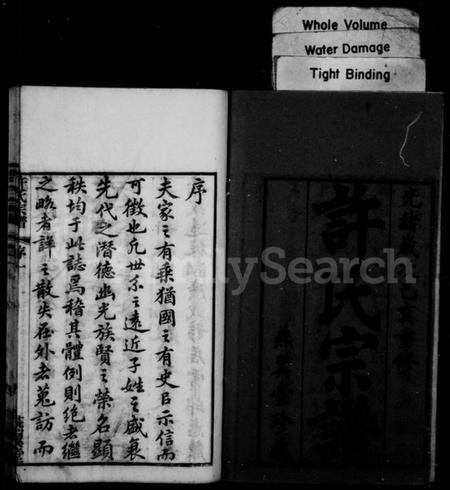 Whole Volume
Water Damage
Tight Binding
光緒歲次己亥重修
許氏宗譜
序
夫家之有乘猶國之有史㠯示信而
可徵也凡世系之遠近子姓之盛衰
先代之潛德幽光族賢之榮名顯
秩均于此誌焉稽其體例則絶者繼
之略者詳之散失在外者蒐訪而
許氏宗譜
序一
FamilySearch